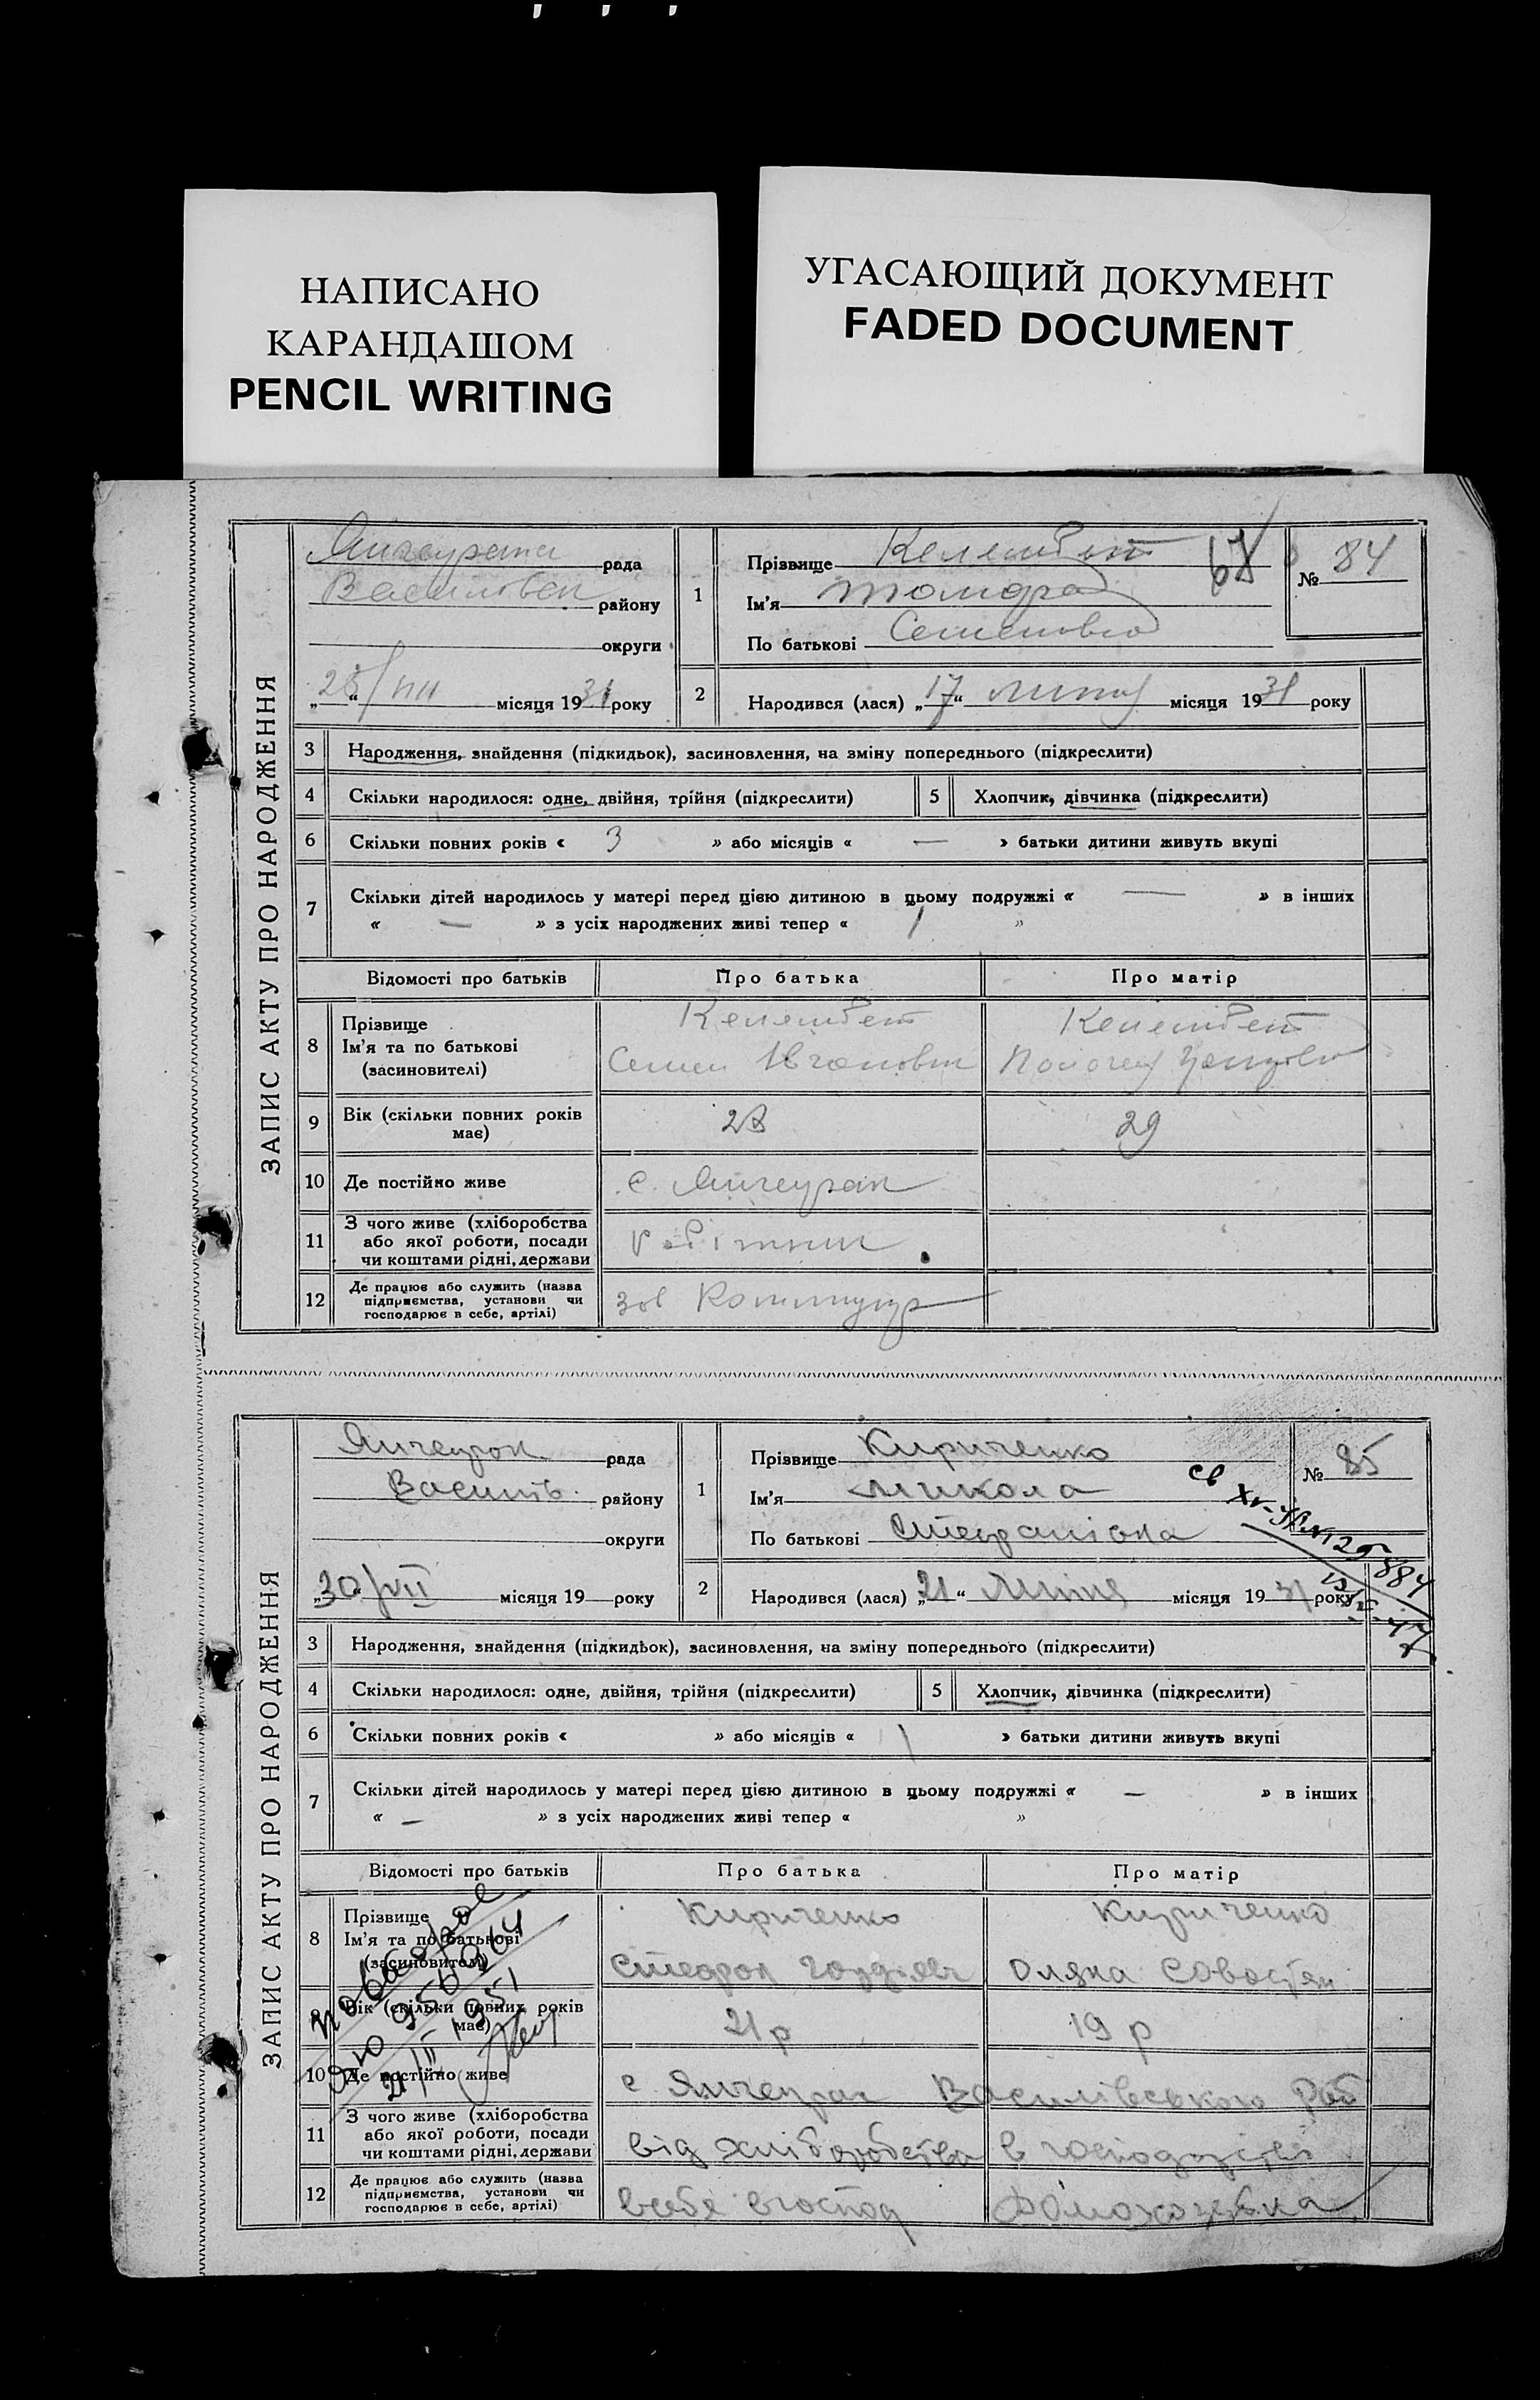 НАПИСАНО
КАРАНДАШОМ
PENCIL WRITING
УГАСАЮЩИЙ ДОКУМЕНТ
FADED DOCUMENT
ЗАПИС АКТУ ПРО НАРОДЖЕННЯ
рада
району
округи
„28“ місяця 1931 року
1
Прізвище
Ім'я
По батькові Семеновна
№ 84
2
Народився (лася) „17“ липня місяця 1931 року
3 Народження, знайдення (підкидьок), засиновлення, на зміну попереднього (підкреслити)
4 Скільки народилося: одне, двійня, трійня (підкреслити)
5 Хлопчик, дівчинка (підкреслити)
6 Скільки повних років « 3 » або місяців « — » батьки дитини живуть вкупі
7 Скільки дітей народилось у матері перед цією дитиною в цьому подружжі « — » в інших
« — » з усіх народжених живі тепер « 1 »
Відомості про батьків Про батька Про матір
8 Прізвище
Ім'я та по батькові
(засиновителі)
Семен
9 Вік (скільки повних років
має)
28 29
10 Де постійно живе с. Янчекрак
11 З чого живе (хліборобства
або якої роботи, посади
чи коштами рідні, держави
робітник
12 Де працює або служить (назва
підприємства, установи чи
господарює в себе, артілі)
ЗАПИС АКТУ ПРО НАРОДЖЕННЯ
Янчекрак рада
Василів. району
округи
„30“ VII місяця 19 року
1
Прізвище Кириченко
Ім'я Микола
По батькові
№ 85
2
Народився (лася) „21“ Липня місяця 1931 року
3 Народження, знайдення (підкидьок), засиновлення, на зміну попереднього (підкреслити)
4 Скільки народилося: одне, двійня, трійня (підкреслити)
5 Хлопчик, дівчинка (підкреслити)
6 Скільки повних років « » або місяців « 1 » батьки дитини живуть вкупі
7 Скільки дітей народилось у матері перед цією дитиною в цьому подружжі « — » в інших
« — » з усіх народжених живі тепер « »
Відомості про батьків Про батька Про матір
8 Прізвище
Ім'я та по батькові
(засиновителі)
Кириченко Кириченко
9 Вік (скільки повних років
має)
21 р 19 р
10 Де постійно живе с. Янчекрак Василівського Рай
11 З чого живе (хліборобства
або якої роботи, посади
чи коштами рідні, держави
від хліборобства в господарстві
12 Де працює або служить (назва
підприємства, установи чи
господарює в себе, артілі)
в себе в господ Домохозяйка